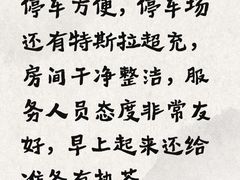 停车方便，停车场
还有特斯拉超充，
房间干净整洁，服
务人员态度非常友
好，早上起来还给
准备有热茶